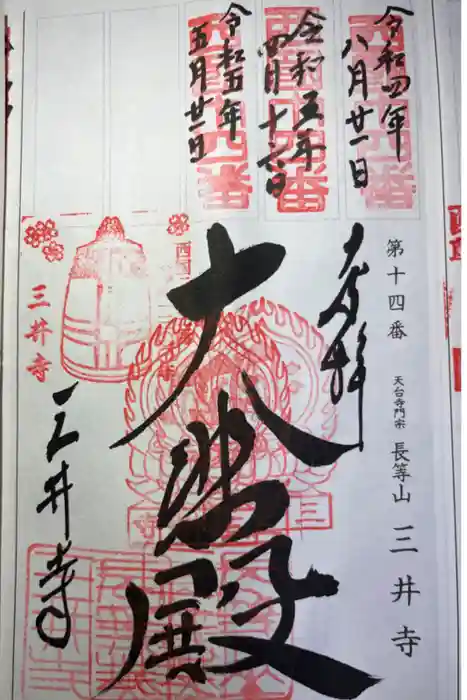 令和四年
八月廿一日
令和三年
四月十六日
令和五年
五月廿一日
第十四番 天台寺門宗 長等山 三井寺
奉拝
大悲殿
三井寺
三井寺